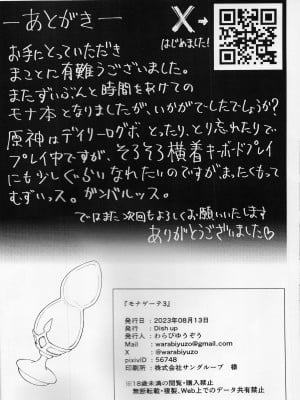 ―あとがき―
X→
はじめました!
お手にとっていただき
まことに有難うございました。
またずいぶんと時間をあけての
モナ本となりましたが、いかがでしたでしょうか?
原神はデイリーログボ とったり、とり忘れたりで
プレイ中ですが、そろそろ横着キーボードプレイ
にも少しぐらい なれたいのですがまったくもって
むずいッス。ガンバルッス。
ではまた次回もよろしくお願いいたします
ありがとうございました♡
『モナゲーテ3』
発行日 : 2023年08月13日
発行 : Dish up
発行人 : わらびゆうぞう
Mail : warabiyuzo@gmail.com
X : @warabiyuzo
pixivID : 56748
印刷所 : 株式会社サングループ 様
※18歳未満の閲覧・購入禁止
無断転載・複製、Web上でのデータ共有禁止